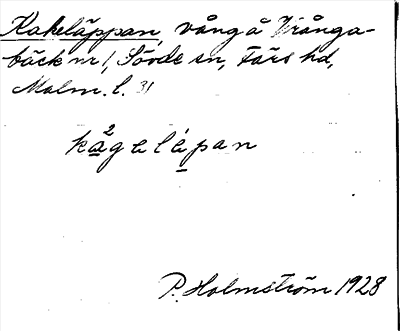 Kakeläppan, vång å Vrånga-
bäck nr 1, Sövde sn, Färs hd,
Malm. l. 31
kāgelépan
P. Holmström 1928